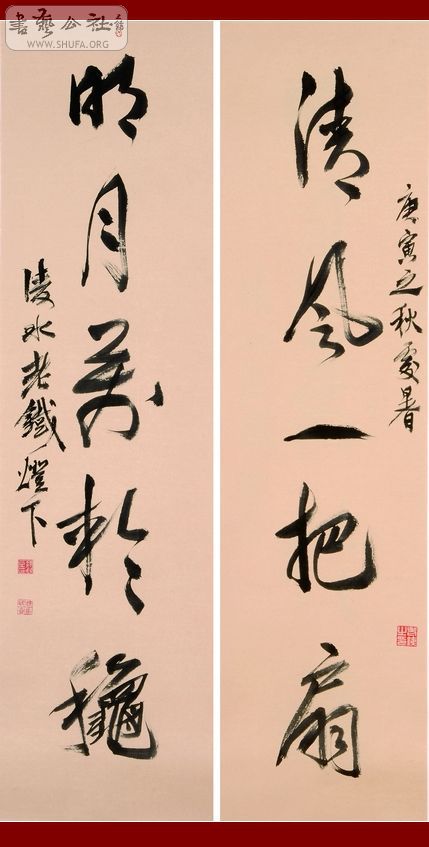 書藝公社
WWW.SHUFA.ORG
庚寅之秋處暑
清風一把扇
明月萬穐
凌水老鐵燈下